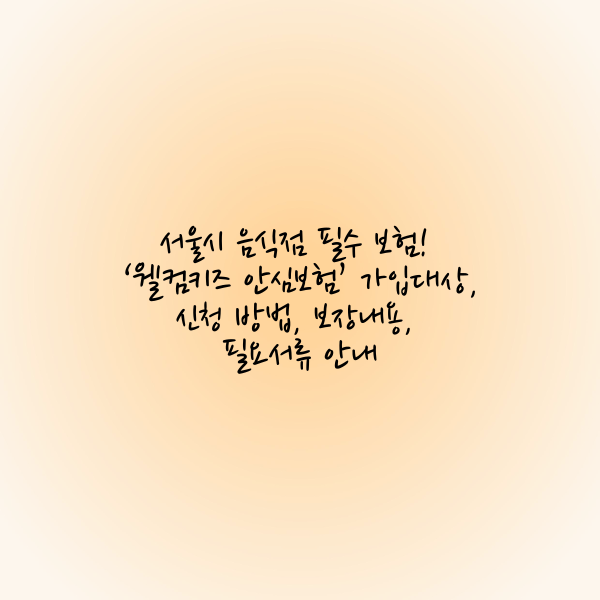 서울시 음식점 필수 보험!
‘웰컴키즈 안심보험’ 가입대상,
신청 방법, 보장내용,
필요서류 안내